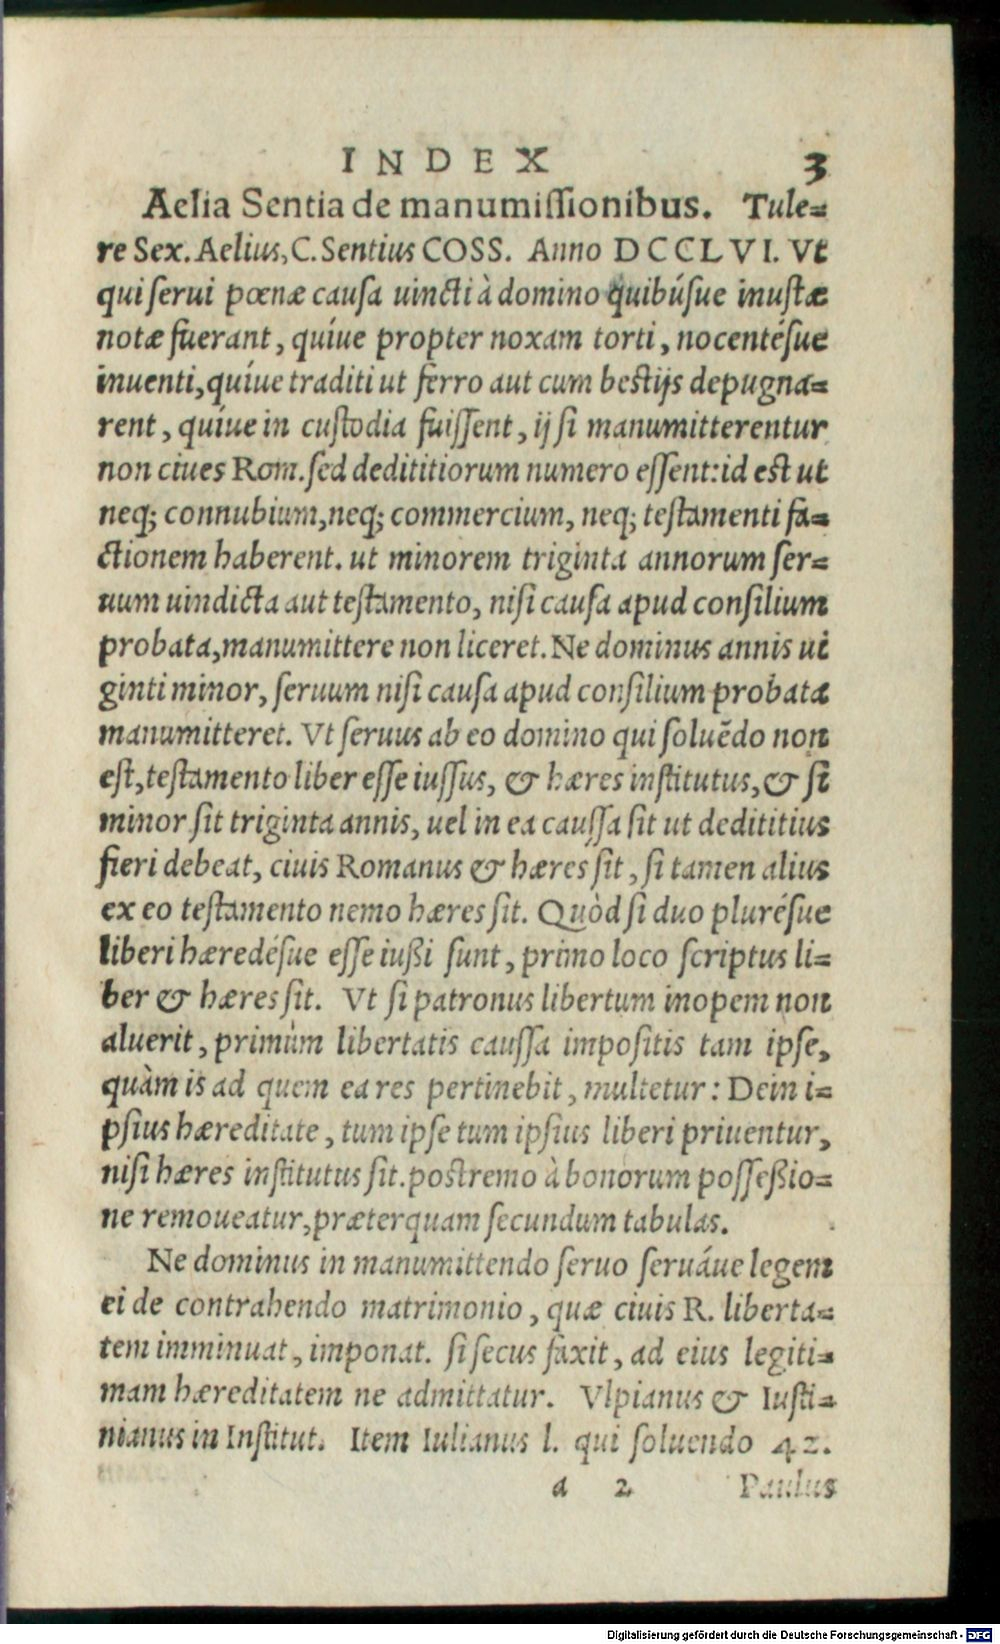 INDEX 3
Aelia Sentia de manumiſſionibus. Tule=
re Sex. Aelius, C. Sentius COSS. Anno DCCLVI. Vt
qui ſerui pœnæ cauſa uincti à domino quibúſue inuſtæ
notæ fuerant, quíue propter noxam torti, nocentéſue
inuenti, quíue traditi ut ferro aut cum beſtijs depugna=
rent, quíue in cuſtodia fuiſſent, ij ſi manumitterentur
non ciues Rom. ſed dedititiorum numero eſſent: id eſt ut
neq; connubium, neq; commercium, neq; teſtamenti fa=
ctionem haberent. ut minorem triginta annorum ſer=
uum uindicta aut teſtamento, niſi cauſa apud conſilium
probata, manumittere non liceret. Ne dominus annis ui
ginti minor, ſeruum niſi cauſa apud conſilium probata
manumitteret. Vt ſeruus ab eo domino qui soluẽdo non
eſt, teſtamento liber eſſe iuſſus, & hæres inſtitutus, & ſi
minor ſit triginta annis, uel in ea cauſſa ſit ut dedititius
fieri debeat, ciuis Romanus & hæres ſit, ſi tamen alius
ex eo teſtamento nemo hæres ſit. Quòd ſi duo pluréſue
liberi hæredéſue eſſe iußi ſunt, primo loco ſcriptus li=
ber & hæres ſit. Vt ſi patronus libertum inopem non
aluerit, primùm libertatis cauſſa impoſitis tam ipſe,
quàm is ad quem ea res pertinebit, multetur: Dein i=
pſius hæreditate, tum ipſe tum ipſius liberi priuentur,
niſi hæres inſtitutus ſit. poſtremo à bonorum poſſeßio=
ne remoueatur, præterquam ſecundum tabulas.
Ne dominus in manumittendo ſeruo ſeruáue legem
ei de contrahendo matrimonio, quæ ciuis R. liberta=
tem imminuat, imponat. ſi ſecus faxit, ad eius legiti=
mam hæreditatem ne admittatur. Vlpianus & Iuſti=
nianus in Inſtitut. Item Iulianus l. qui ſoluendo 42.
a 2 Paulus
Digitalisierung gefördert durch die Deutsche Forschungsgemeinschaft - DFG